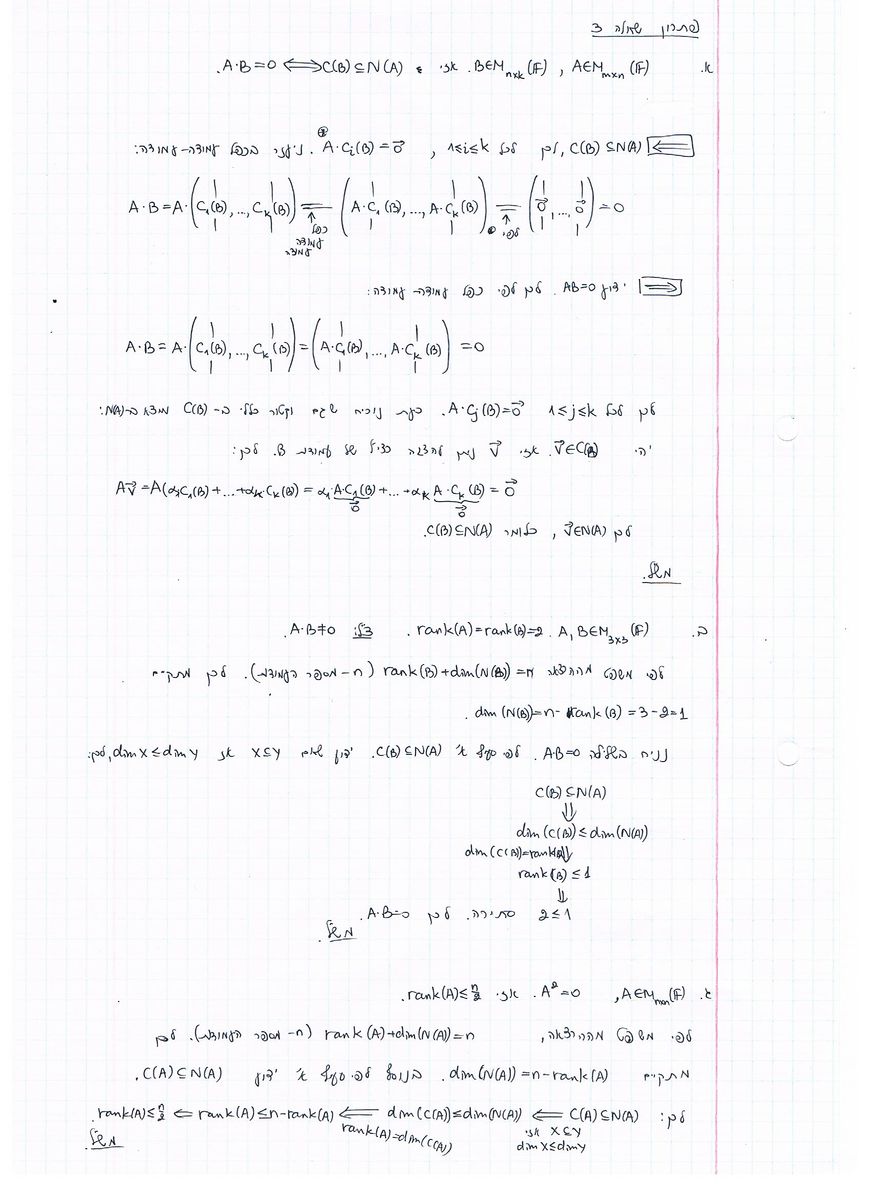 פתרון שאלה 3
א. A∈M_{m×n}(F) , B∈M_{n×k}(F). אזי : A·B=0 ⟺ C(B)⊆N(A).
⟸ C(B)⊆N(A), לכן לכל 1≤i≤k , A·C_i(B)=0⃗ . ניעזר בכפל עמודה-עמודה:
A·B=A·(C_1(B),...,C_k(B)) = (A·C_1(B),...,A·C_k(B)) = (0⃗,...,0⃗) =0
כפל עמודה עמודה
לפי
⟹ ידוע AB=0. לכן לפי כפל עמודה-עמודה:
A·B=A·(C_1(B),...,C_k(B))=(A·C_1(B),...,A·C_k(B))=0
לכן לכל 1≤j≤k A·C_j(B)=0⃗. כעת נוכיח שגם וקטור כללי ב-C(B) נמצא ב-N(A):
יהי v⃗∈C(B). אזי v⃗ ניתן להצגה כצ"ל של עמודות B. לכן:
Av⃗=A(α_1C_1(B)+...+α_k·C_k(B))=α_1·A·C_1(B)+...+α_k A·C_k(B)=0⃗
0⃗ 0⃗
לכן v⃗∈N(A) , כלומר C(B)⊆N(A).
מש"ל.
ב. A,B∈M_{3×3}(F). rank(A)=rank(B)=2. צ"ל: A·B≠0.
לפי משפט מההרצאה rank(B)+dim(N(B))=n (n-מספר העמודות). לכן מתקיים
dim(N(B))=n-rank(B)=3-2=1.
נניח בשלילה A·B=0. לפי סעיף א' C(B)⊆N(A). ידוע שאם X⊆Y אז dimX≤dimY, לכן:
C(B)⊆N(A)
⇓
dim(C(B))≤dim(N(A))
dim(C(B))=rank(B) ⇓
rank(B)≤1
⇓
2≤1 סתירה. לכן A·B=0.
מש"ל.
ג. A∈M_{n×n}(F), A²=0. אזי rank(A)≤n/2.
לפי משפט מההרצאה, rank(A)+dim(N(A))=n (n-מספר העמודות). לכן
מתקיים dim(N(A))=n-rank(A). בנוסף לפי סעיף א' ידוע C(A)⊆N(A).
לכן: C(A)⊆N(A) ⟸ dim(C(A))≤dim(N(A)) ⟸ rank(A)≤n-rank(A) ⟸ rank(A)≤n/2.
X⊆Y אזי dimX≤dimY
rank(A)=dim(C(A))
מש"ל